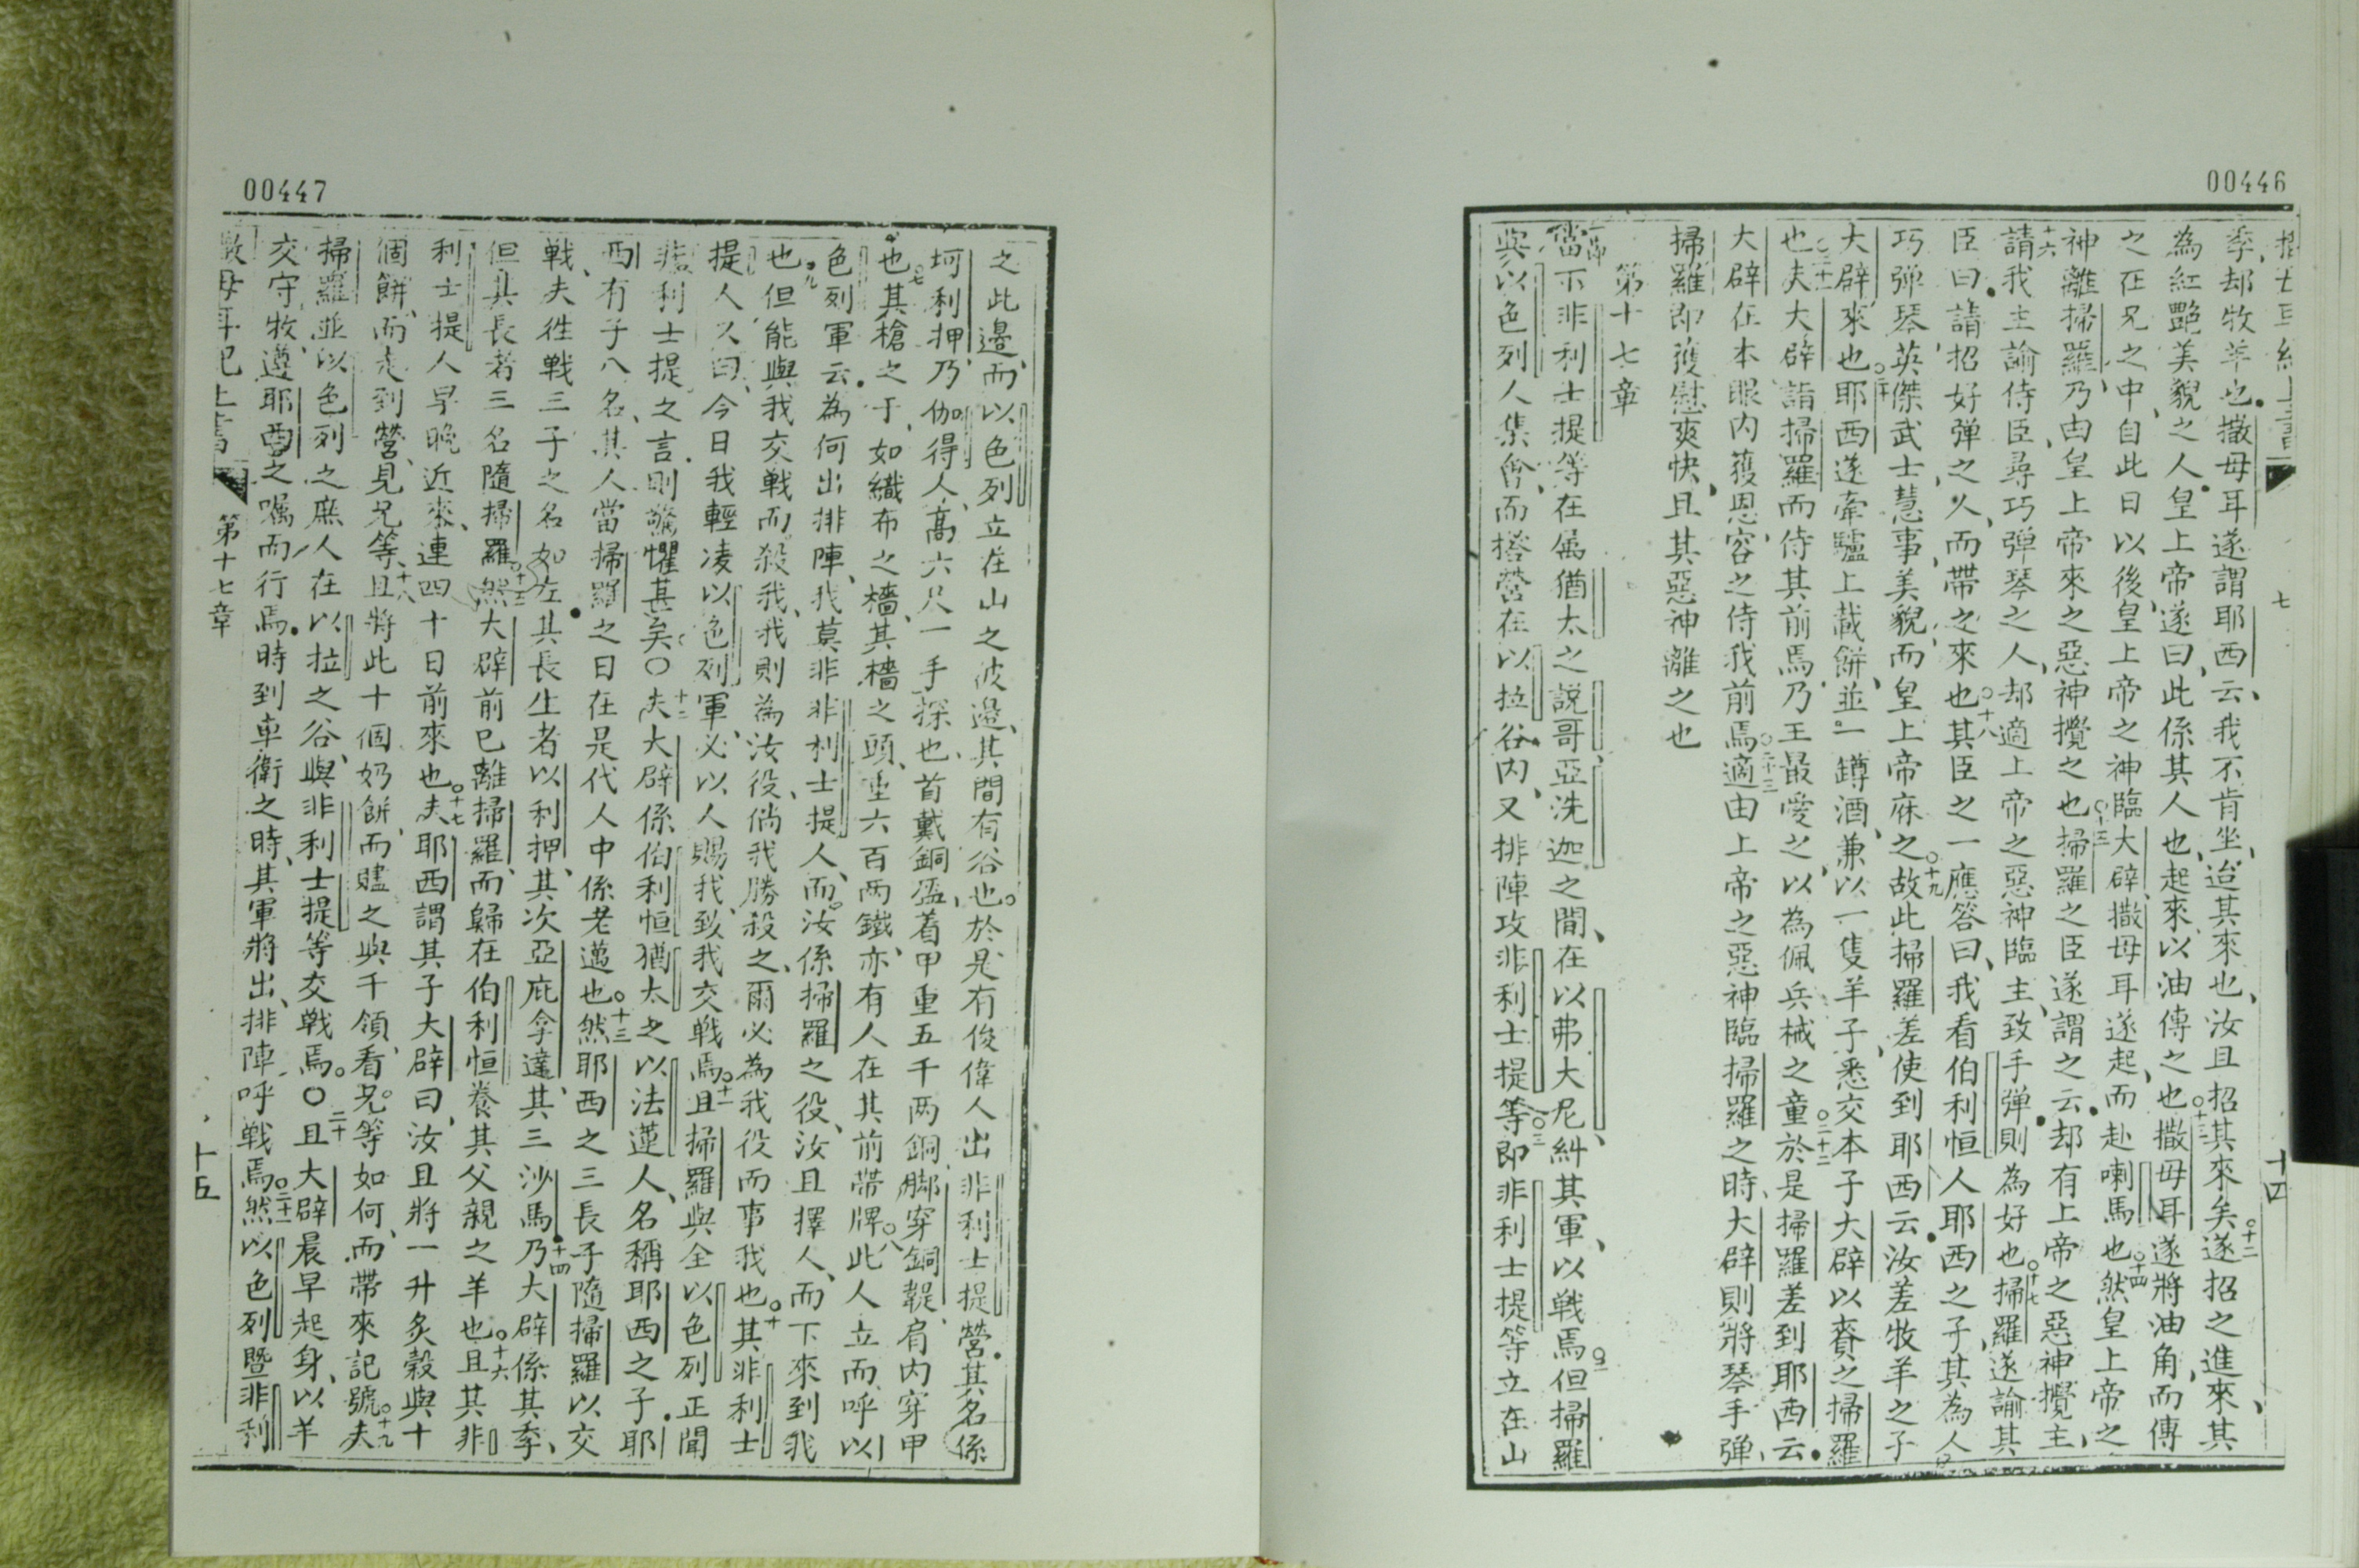 00446
季、却牧羊也、撒母耳遂謂耶西云、我不肯坐、迨其來也、汝且招其來矣○十二遂招之進來、其
為紅艷美貌之人、皇上帝遂曰、此係其人也、起來以油傅之也○十三撒母耳遂將油角、而傅
之在兄之中、自此日以後、皇上帝之神臨大辟、撒母耳遂起、而赴喇馬也○十四然皇上帝之
神離掃羅、乃由皇上帝來之惡神攪之也○十五掃羅之臣遂謂之云、却有上帝之惡神攪主、
十六請我主諭侍臣、尋巧弹琴之人、却適上帝之惡神臨主、致手弹、則為好也○十七掃羅遂諭其
臣曰、請招好弹之人、而帶之來也○十八其臣之一應答曰、我看伯利恒人耶西之子、其為人
巧弹琴、英傑武士、慧事、美貌、而皇上帝庥之○十九故此掃羅差使到耶西云、汝差牧羊之子
大辟來也○二十耶西遂牽驢上載餅、並一罇酒、兼以一隻羊子、悉交本子大辟以賚之掃羅
也○二十一夫大辟詣掃羅而侍其前焉、乃王最愛之、以為佩兵械之童○二十二於是掃羅差到耶西云、
大辟在本眼内獲恩、容之侍我前焉○二十三適由上帝之惡神臨掃羅之時、大辟則將琴手弹、
掃羅即獲慰爽快、且其惡神離之也
第十七章
一節當下非利士提等在屬猶太之説哥、亞洗迦之間、在以弗大尼糾其軍、以戦焉○二但掃羅
與以色列人集會、而搭營在以拉谷内、又排陣攻非利士提等○三即非利士提等立在山
七
十四
00447
之此邊、而以色列立在山之彼邊、其間有谷也。於是有俊偉人出非利士提營、其名係
坷利押、乃伽得人、高六尺一手探也、首戴銅盔、着甲重五千两銅、脚穿銅鞮、肩内穿甲
也○七其槍之于、如織布之檣、其檣之頭、重六百两鐵、亦有人在其前帶牌○八此人立而呼以
色列軍云、為何出排陣、我莫非非利士提人、而汝係掃羅之役、汝且擇人、而下來到我
也○九但能與我交戦而殺我、我則為汝役、倘我勝殺之、爾必為我役而事我也○十其非利士
提人又曰、今日我輕凌以色列軍、必以人賜我、致我交戦焉○十一且掃羅與全以色列正聞
非利士提之言、則驚懼甚矣○十二夫大辟係伯利恒猶太之以法蓮人、名稱耶西之子、耶
西有子八名、其人當掃羅之日在是代人中係老邁也○十三然耶西之三長子隨掃羅以交
戦、夫徃戦三子之名如左、其長生者以利押、其次亞庇拿達、其三沙馬○十四乃大辟係其季、
但其長者三名隨掃羅○十五然大辟前已離掃羅、而歸在伯利恒養其父親之羊也○十六且其非
利士提人早晩近來、連四十日前來也○十七夫耶西謂其子大辟曰、汝且將一升炙穀與十
個餅、而走到營、見兄等○十八且將此十個奶餅、而贐之與千領、看兄等如何、而帶來記號○十九夫
掃羅並以色列之庶人在以拉之谷、與非利士提等交戦焉○二十且大辟晨早起身、以羊
交守牧、遵耶西之囑而行焉、時到車衛之時、其軍將出、排陣呼戦焉○二十一然以色列暨非利
第十七章
十五